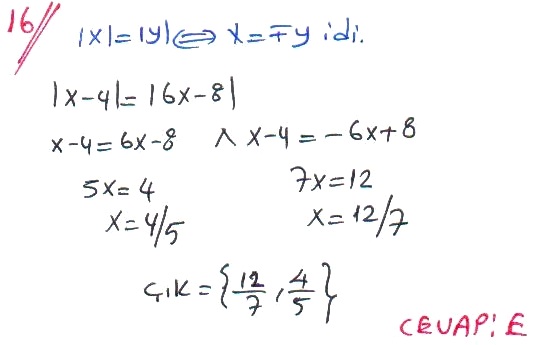 16// |x|=|y| ⇔ x=∓y idi.
|x-4|=|6x-8|
x-4=6x-8 ∧ x-4=-6x+8
5x=4 7x=12
x=4/5 x=12/7
Ç.K={12/7, 4/5}
CEVAP: E